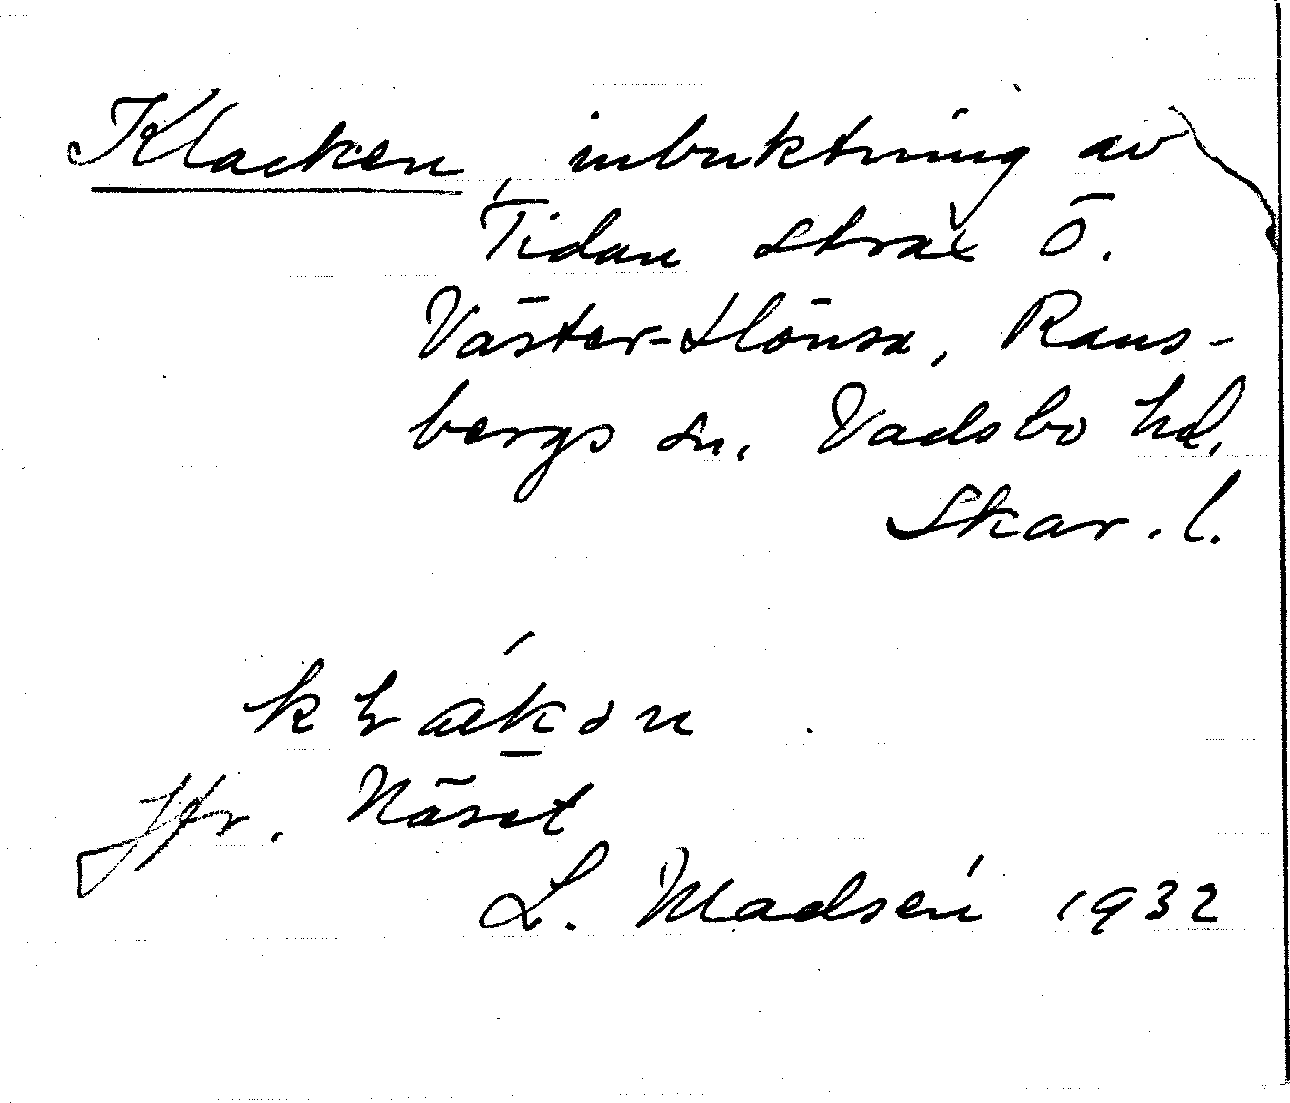 Klacken, inbuktning av
Tidan strax Ö.
Väster-Hönsa, Rans-
bergs sn. Vadsbo hd.
Skar. l.
Jfr. Näset
L. Madsén 1932